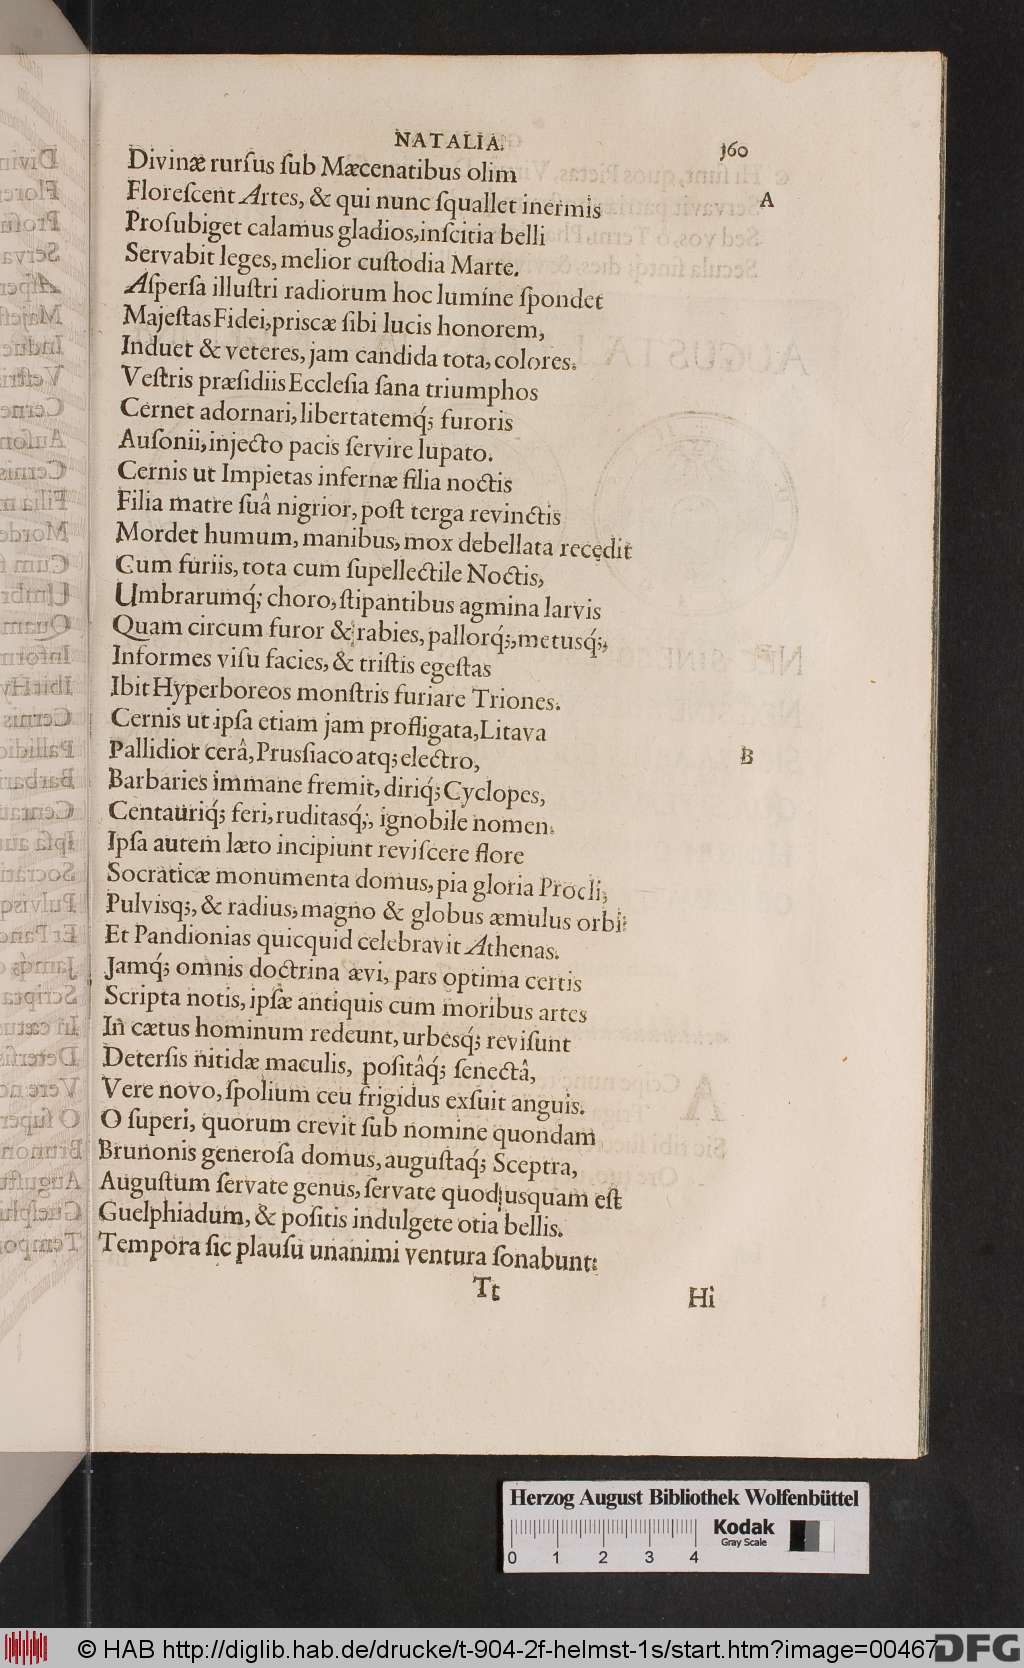 NATALIA.
160
Divinæ rurſus ſub Mæcenatibus olim
Floreſcent Artes, & qui nunc ſquallet inermis
A
Proſubiget calamus gladios, inſcitia belli
Servabit leges, melior cuſtodia Marte.
Aſperſa illuſtri radiorum hoc lumine ſpondet
Majeſtas Fidei, priſcæ ſibi lucis honorem,
Induet & veteres, jam candida tota, colores.
Veſtris præſidiis Eccleſia ſana triumphos
Cernet adornari, libertatemq́; furoris
Auſonii, injecto pacis ſervire lupato.
Cernis ut Impietas infernæ filia noctis
Filia matre ſuâ nigrior, poſt terga revinctis
Mordet humum, manibus, mox debellata recędit
Cum furiis, tota cum ſupellectile Noctis,
Umbrarumq́; choro, ſtipantibus agmina larvis
Quam circum furor & rabies, pallorq́;, metusq́;,
Informes viſu facies, & triſtis egeſtas
Ibit Hyperboreos monſtris furiare Triones.
Cernis ut ipſa etiam jam profligata, Litava
Pallidior cerâ, Prusſiaco atq; electro,
B
Barbaries immane fremit, diriq́; Cyclopes,
Centauriq́; feri, ruditasq́;, ignobile nomen.
Ipſa autem læto incipiunt reviſcere flore
Socraticæ monumenta domus, pia gloria Procli,
Pulvisq;, & radius, magno & globus æmulus orbi:
Et Pandionias quicquid celebravit Athenas.
Jamq́; omnis doctrina ævi, pars optima certis
Scripta notis, ipſæ antiquis cum moribus artes
In cætus hominum redeunt, urbesq́; reviſunt
Deterſis nitidæ maculis, poſitâq́; ſenectâ,
Vere novo, ſpolium ceu frigidus exſuit anguis.
O ſuperi, quorum crevit ſub nomine quondam
Brunonis generoſa domus, auguſtaq́; Sceptra,
Auguſtum ſervate genus, ſervate quod usquam eſt
Guelphiadum, & poſitis indulgete otia bellis.
Tempora ſic plauſu unanimi ventura ſonabunt:
Tt
Hi
Herzog August Bibliothek Wolfenbüttel
Kodak
Gray Scale
0 1 2 3 4
© HAB http://diglib.hab.de/drucke/t-904-2f-helmst-1s/start.htm?image=00467
DFG